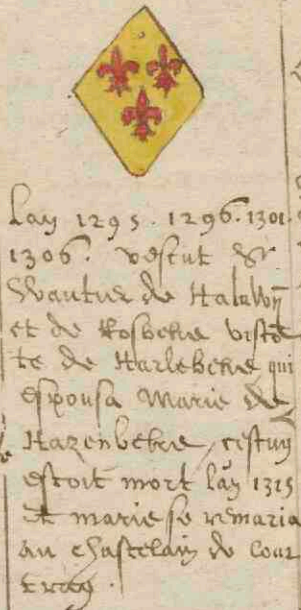 Lan 1295. 1296. 1301.
1306. vescut Sr
Wautier de Haluwÿ
et de Rosbeke viscõ
te de Harlebeke qui
espousa Marie de
Hazenbeke, cestuy
estoit mort lan 1315
et marie se remaria
au chastelain de Cour
tray.